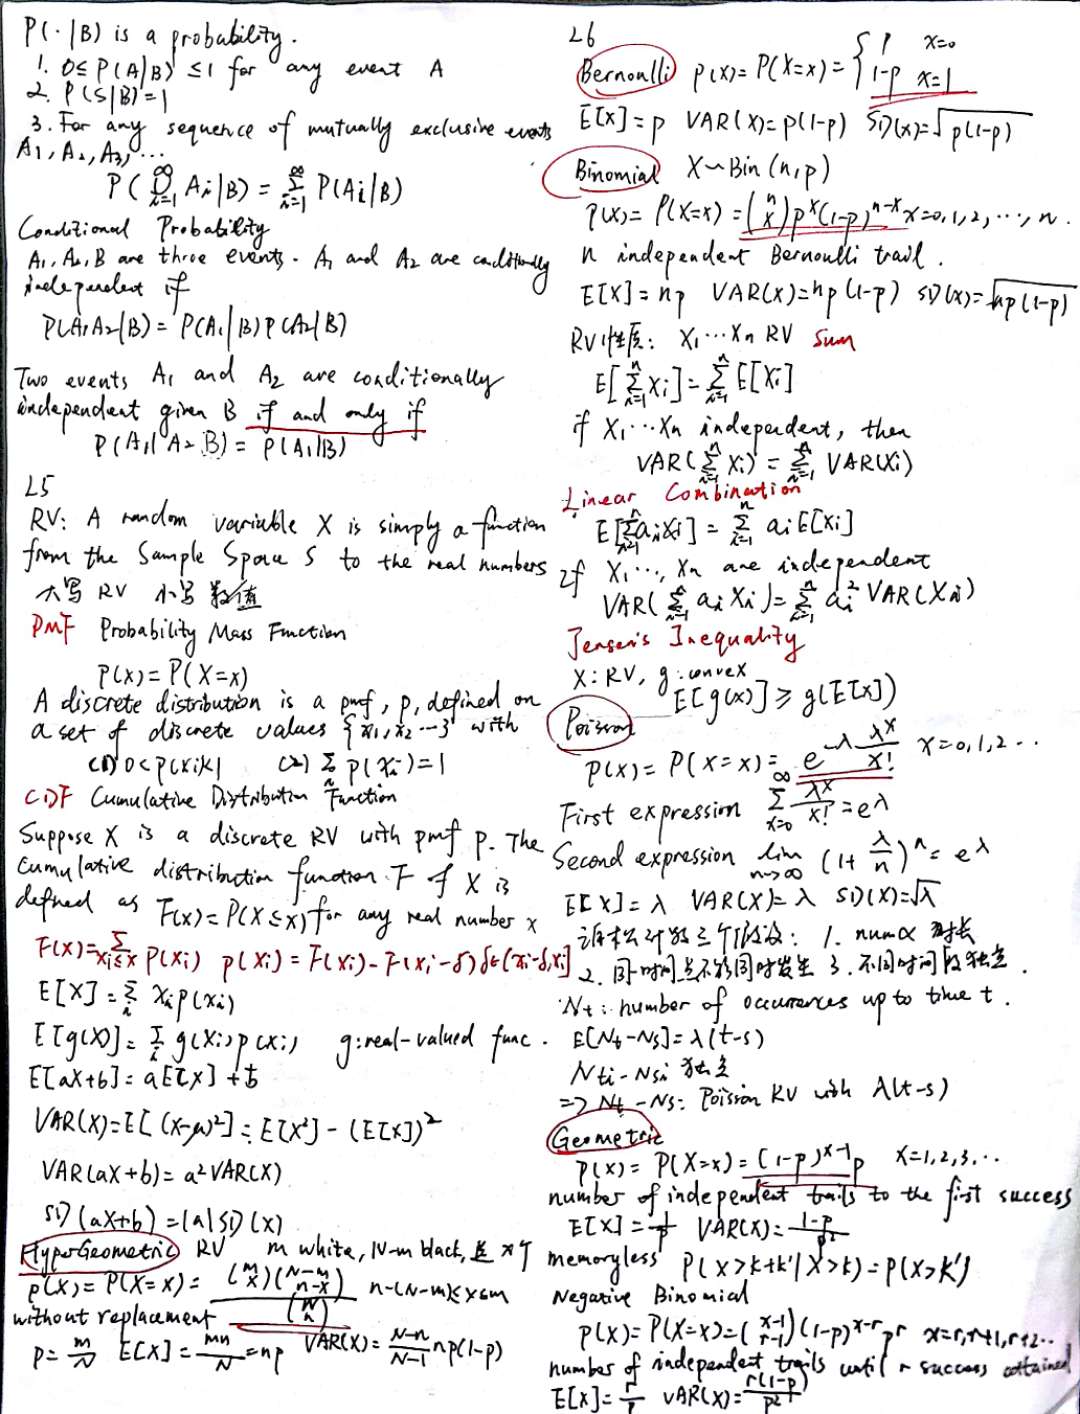 P(·|B) is a probability.
1. 0≤P(A|B)≤1 for any event A
2. P(S|B)=1
3. For any sequence of mutually exclusive events
A₁, A₂, A₃, ...
P(⋃_{i=1}^{∞} Ai|B) = Σ_{i=1}^{∞} P(Ai|B)
Conditional Probability
A₁, A₂, B are three events. A₁ and A₂ are conditionally
independent if
P(A₁A₂|B) = P(A₁|B)P(A₂|B)
Two events A₁ and A₂ are conditionally
independent given B if and only if
P(A₁|A₂B) = P(A₁|B)
L5
RV: A random variable X is simply a function
from the Sample Space S to the real numbers
大写 RV 小写 数值
PMF Probability Mass Function
P(x)=P(X=x)
A discrete distribution is a pmf, p, defined on
a set of discrete values {x₁, x₂ ...} with
(1) 0<p(xi)<1 (2) Σ_i p(xi)=1
CDF Cumulative Distribution Function
Suppose X is a discrete RV with pmf p. The
cumulative distribution function F of X is
defined as F(x)=P(X≤x) for any real number x
F(x)=Σ_{xi≤x} p(xi) p(xi)=F(xi)-F(xi-δ)
E[X]=Σ_i xi p(xi)
E[g(X)]=Σ_i g(xi)p(xi) g:real-valued func.
E[aX+b]=aE[X]+b
VAR(X)=E[(X-μ)²]=E[X²]-(E[X])²
VAR(aX+b)=a²VAR(X)
SD(aX+b)=|a|SD(X)
HyperGeometric RV m white, N-m black, 选 n个
p(x)=P(X=x)=(m x)(N-m n-x)/(N n) n-(N-m)≤x≤m
without replacement
p=m/N E[X]=mn/N=np VAR(X)=N-n/N-1 np(1-p)
L6
Bernoulli p(x)=P(X=x)={p x=0
1-p x=1
E[x]=p VAR(x)=p(1-p) SD(x)=√p(1-p)
Binomial X~Bin(n,p)
p(x)=P(X=x)=(n x)p^x(1-p)^{n-x} x=0,1,2,...,n.
n independent Bernoulli trail.
E[X]=np VAR(X)=np(1-p) SD(x)=√np(1-p)
RV性质: X₁...Xn RV Sum
E[Σ_{i=1}^{n} Xi]=Σ_{i=1}^{n} E[Xi]
if X₁...Xn independent, then
VAR(Σ_{i=1}^{n} Xi)=Σ_{i=1}^{n} VAR(Xi)
Linear Combination
E[Σ_{i=1}^{n} aiXi]=Σ_{i=1}^{n} aiE[Xi]
If X₁..., Xn are independent
VAR(Σ_{i=1}^{n} aiXi)=Σ_{i=1}^{n} ai² VAR(Xi)
Jensen's Inequality
X: RV, g: convex
E[g(x)]≥g(E[x])
Poisson
p(x)=P(X=x)=e^{-λ} λ^x/x! x=0,1,2...
First expression Σ_{x=0}^{∞} λ^x/x!=e^λ
Second expression lim_{n→∞} (1+λ/n)^n=e^λ
E[X]=λ VAR(X)=λ SD(X)=√λ
泊松对数三个假设: 1. num∝ 时长
2. 同一时间点不能同时发生 3. 不同时间段独立.
Nt: number of occurrences up to time t.
E[Nt-Ns]=λ(t-s)
Nti-Nsi 独立
=> Nt-Ns: Poisson RV with λ(t-s)
Geometric
p(x)=P(X=x)=(1-p)^{x-1}p x=1,2,3,...
number of independent trails to the first success
E[X]=1/p VAR(X)=1-p/p²
memoryless P(X>k+k'|X>k)=P(X>k')
Negative Binomial
p(x)=P(X=x)=(x-1 r-1)(1-p)^{x-r}p^r x=r,r+1,r+2...
number of independent trails until r success obtained
E[X]=r/p VAR(X)=r(1-p)/p²